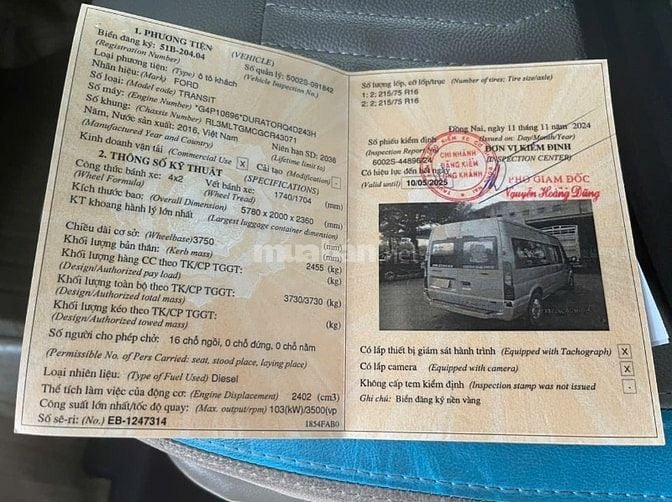 1. PHƯƠNG TIỆN (VEHICLE)
Biển đăng ký: 51B-204.04
(Registration Number) Số quản lý: 5002S-091842
(Vehicle Inspection No.)
Loại phương tiện: (Type) ô tô khách
Nhãn hiệu: (Mark) FORD
Số loại: (Model code) TRANSIT
Số máy: (Engine Number) *G4P10696*DURATORQ4D243H
Số khung: (Chassis Number) RL3MLTGMCGCR43071
Năm, Nước sản xuất: 2016, Việt Nam Niên hạn SD: 2036
(Manufactured Year and Country) (Lifetime limit to)
Kinh doanh vận tải (Commercial Use) X Cải tạo (Modification) -
2. THÔNG SỐ KỸ THUẬT (SPECIFICATIONS)
Công thức bánh xe: 4x2 Vết bánh xe: 1740/1704 (mm)
(Wheel Formula) (Wheel Tread)
Kích thước bao: 5780 x 2000 x 2360 (mm)
(Overall Dimension)
KT khoang hành lý lớn nhất (Largest luggage container dimension)
(mm)
Chiều dài cơ sở: (Wheelbase) 3750 (mm)
Khối lượng bản thân: (Kerb mass) 2455 (kg)
Khối lượng hàng CC theo TK/CP TGGT: (kg)
(Design/Authorized pay load)
Khối lượng toàn bộ theo TK/CP TGGT: 3730/3730 (kg)
(Design/Authorized total mass)
Khối lượng kéo theo TK/CP TGGT: (kg)
(Design/Authorized towed mass)
Số người cho phép chở: 16 chỗ ngồi, 0 chỗ đứng, 0 chỗ nằm
(Permissible No. of Pers Carried: seat, stood place, laying place)
Loại nhiên liệu: (Type of Fuel Used) Diesel
Thể tích làm việc của động cơ: (Engine Displacement) 2402 (cm3)
Công suất lớn nhất/tốc độ quay: (Max. output/rpm) 103(kW)/3500(vp
Số sê-ri: (No.) EB-1247314 1854FAB0
Số lượng lốp, cỡ lốp/trục (Number of tires: Tire size/axle)
1: 2: 215/75 R16
2: 2: 215/75 R16
Đồng Nai, ngày 11 tháng 11 năm 2024
Số phiếu kiểm định (Issued on: Day/Month/Year)
(Inspection Report 6002S-44896/24 ĐƠN VỊ KIỂM ĐỊNH
(INSPECTION CENTER)
Có hiệu lực đến hết ngày
(Valid until) 10/05/2025
CHI NHÁNH
ĐĂNG KIỂM
LONG KHÁNH
PHÓ GIÁM ĐỐC
Nguyễn Hoàng Dũng
muaban
Có lắp thiết bị giám sát hành trình (Equipped with Tachograph) X
Có lắp camera (Equipped with camera) X
Không cấp tem kiểm định (Inspection stamp was not issued -
Ghi chú: Biển đăng ký nền vàng